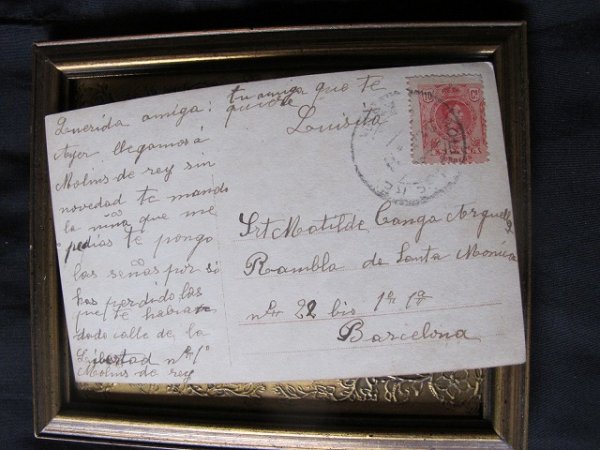 Querida amiga:
Ayer llegamos á
Molins de rey sin
novedad te mando
la niña que me
pedias te pongo
las señas por si
has perdido las
que te habian
dado calle de la
Libertad nº 1º
Molins de rey
tu amiga que te
quiere
Luisita
10 CS
Srt Matilde Canga Arguelles
Rambla de Santa Monica
nº 22 bis 1º 1ª
Barcelona